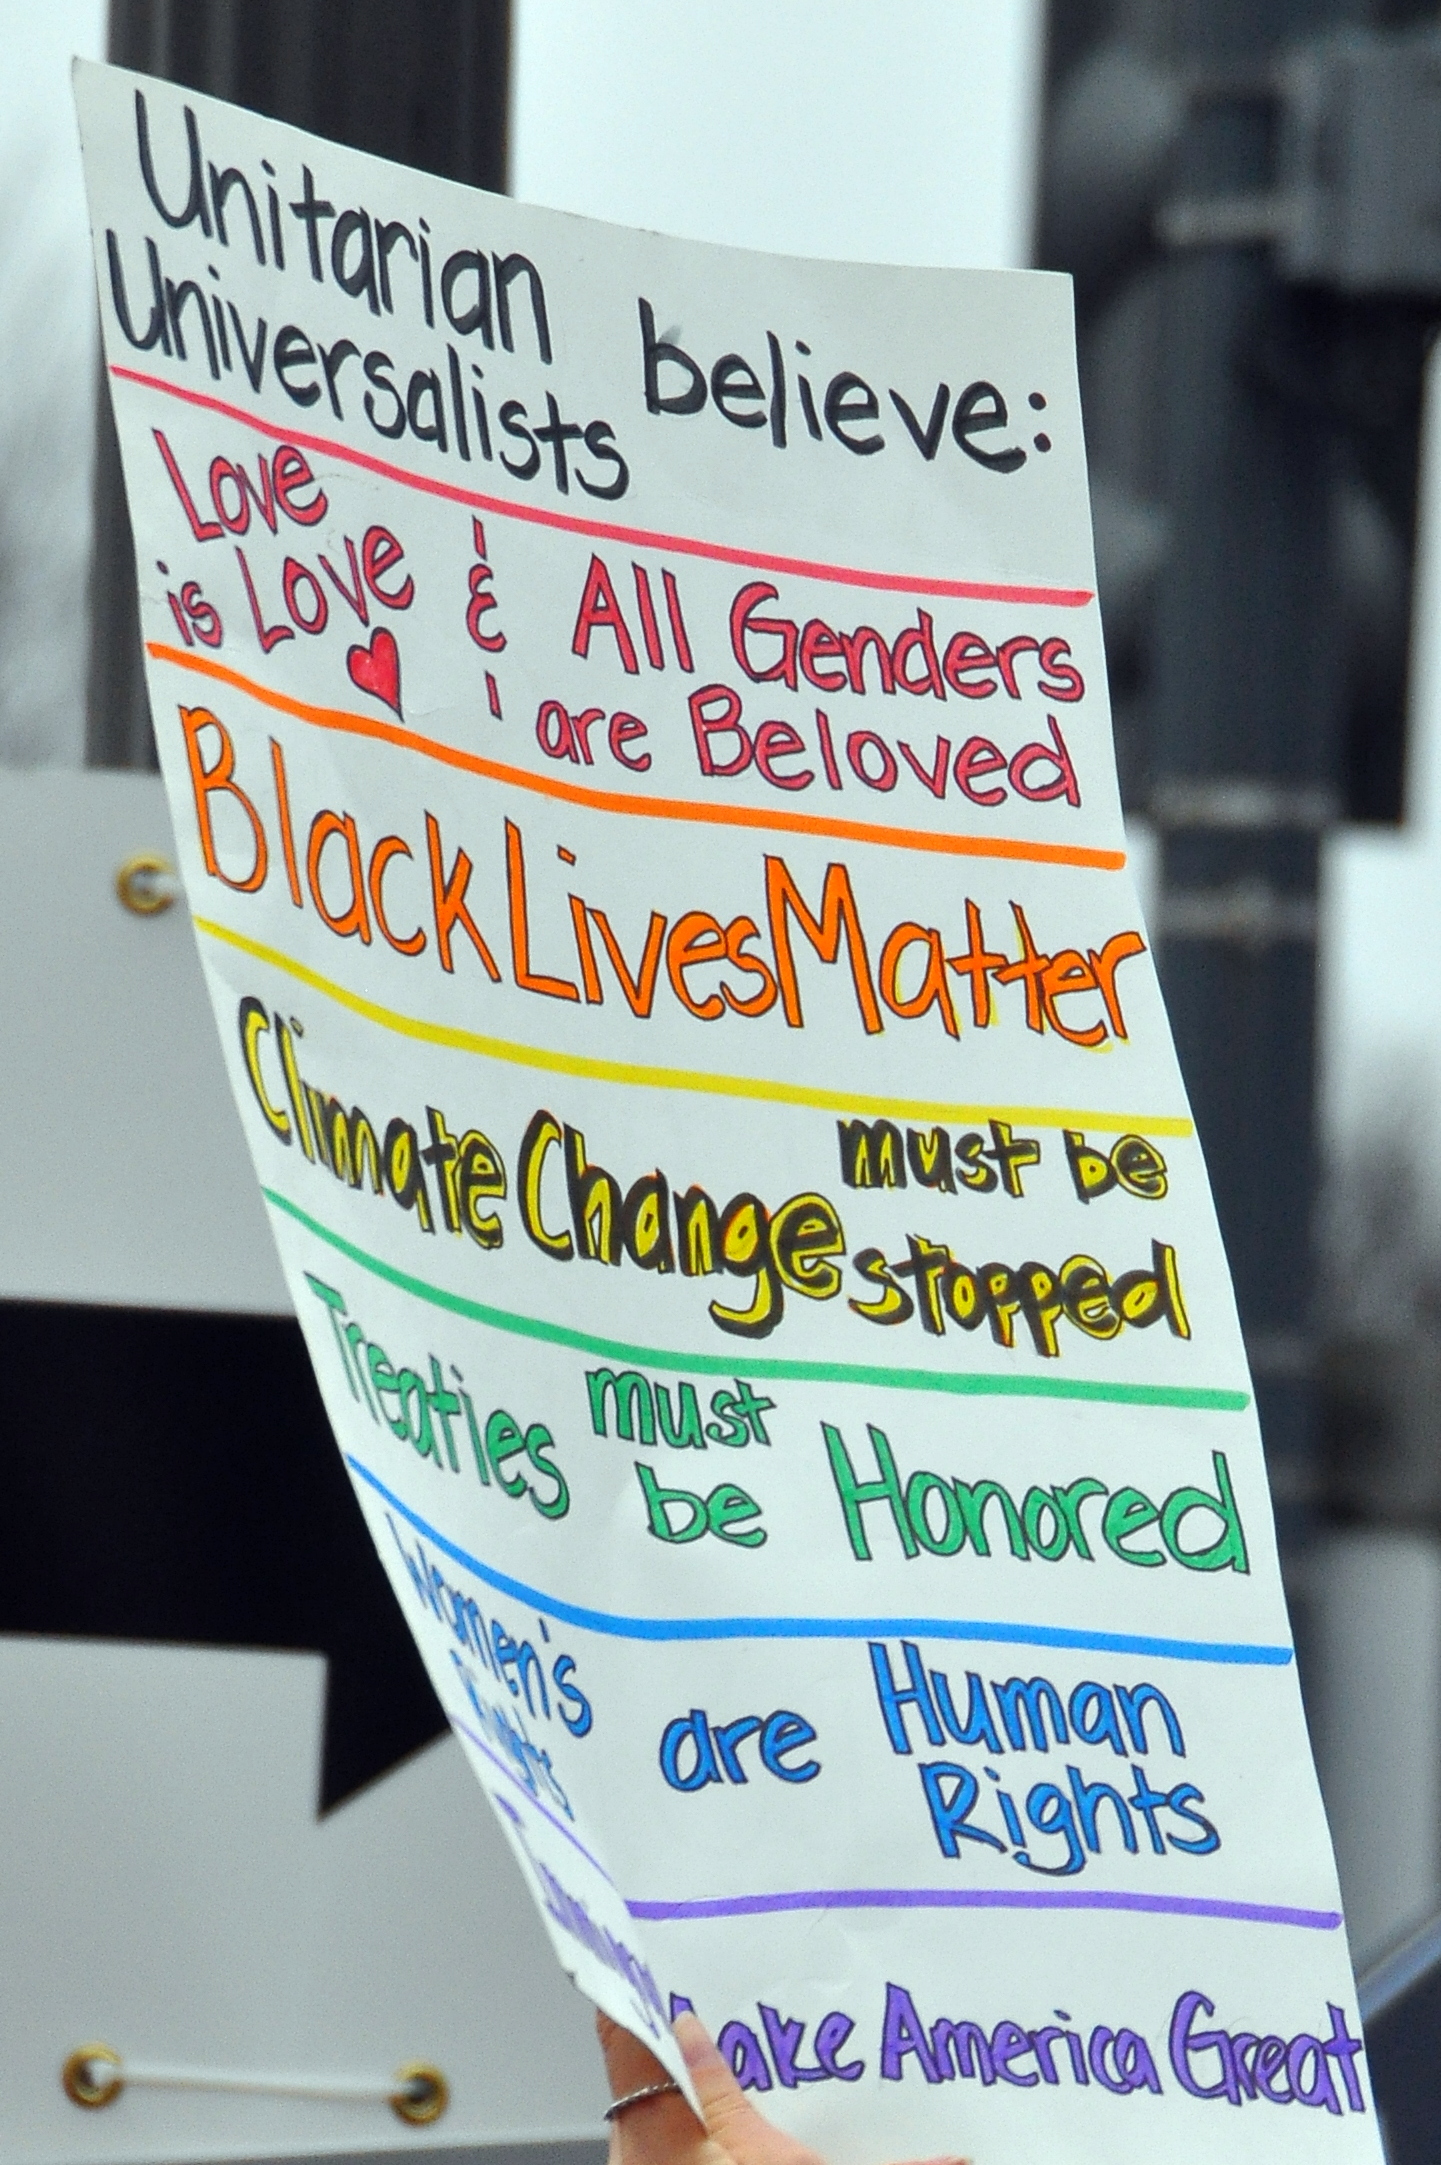 Unitarian
Universalists believe:
Love
is Love & All Genders
are Beloved
BlackLivesMatter
Climate Change must be
stopped
Treaties must
be Honored
Women's
Rights are Human
Rights
Make America Great